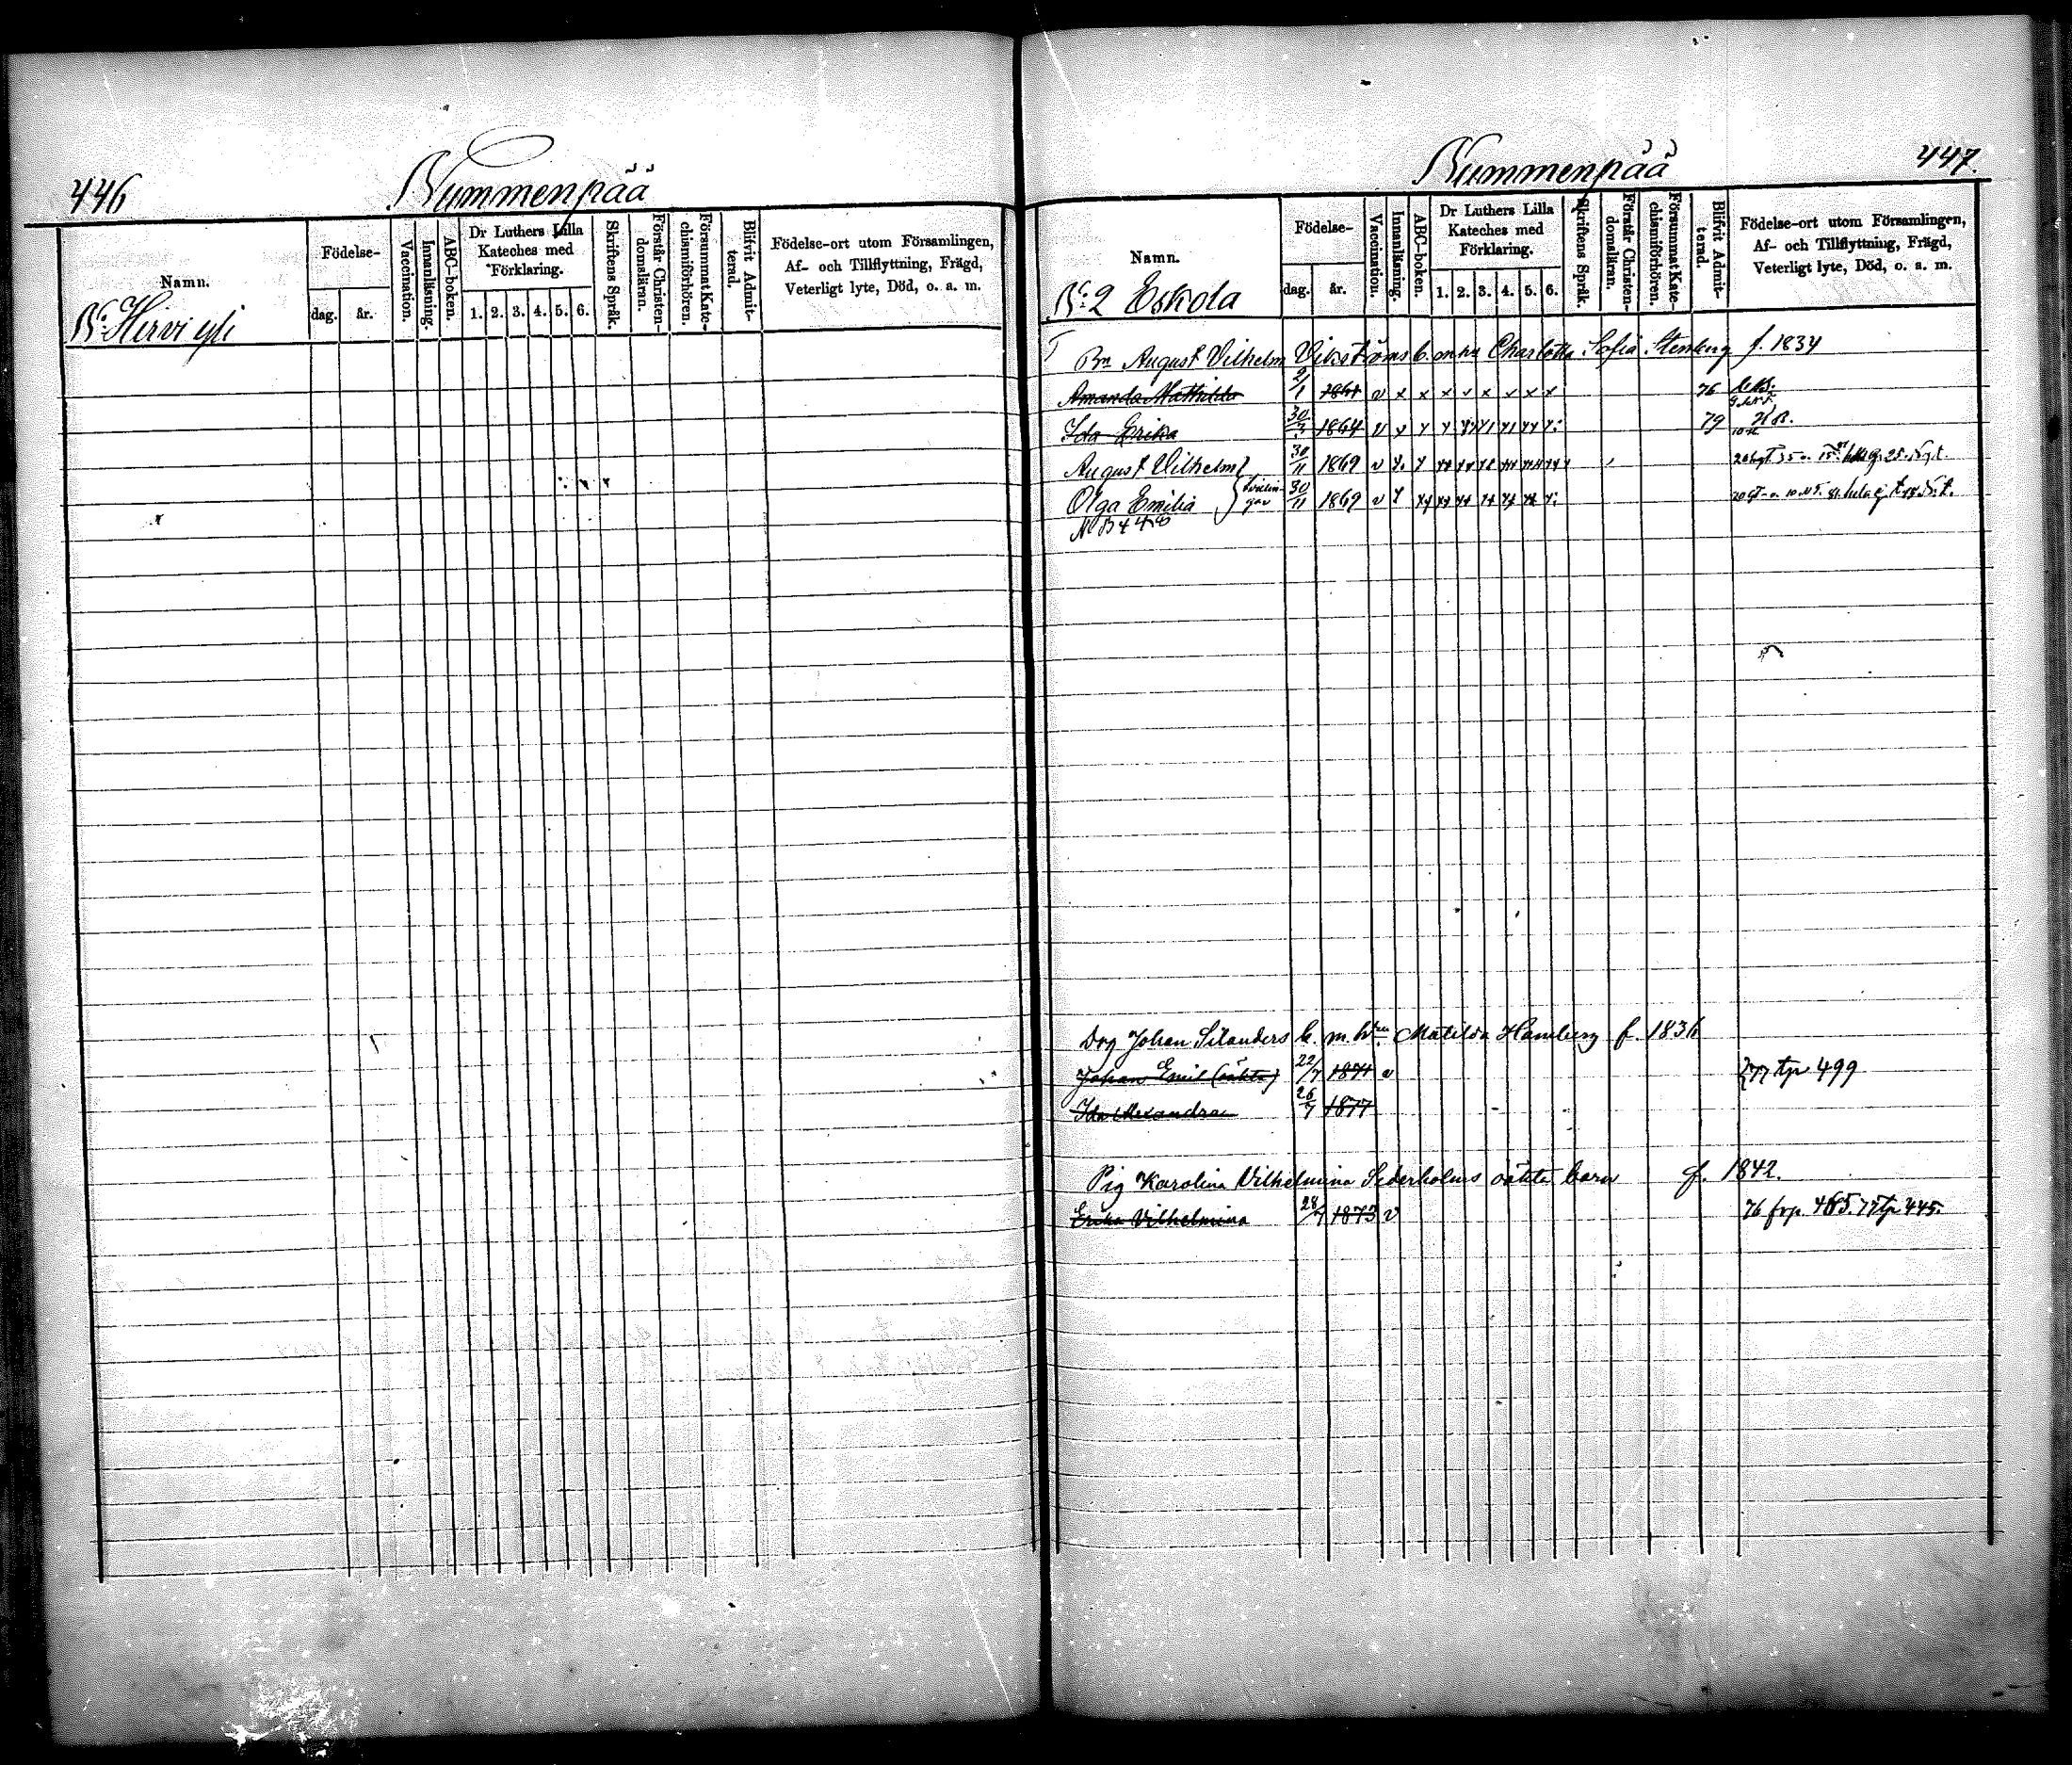 446
Nummenpää
Namn.
Födelse-
dag.
år.
Vaccination.
Innanläsning.
ABC-boken.
Dr Luthers Lilla
Kateches med
Förklaring.
1. 2. 3. 4. 5. 6.
Skriftens Språk.
Förstår Christen-
domsläran.
Försummat Kate-
chismiförhören.
Blifvit Admit-
terad.
Födelse-ort utom Församlingen,
Af- och Tillflyttning, Frägd,
Veterligt lyte, Död, o. a. m.
Hirvi
Nummenpää
447.
Namn.
Födelse-
dag.
år.
Vaccination.
Innanläsning.
ABC-boken.
Dr Luthers Lilla
Kateches med
Förklaring.
1. 2. 3. 4. 5. 6.
Skriftens Språk.
Förstår Christen-
domsläran.
Försummat Kate-
chismiförhören.
Blifvit Admit-
terad.
Födelse-ort utom Församlingen,
Af- och Tillflyttning, Frägd,
Veterligt lyte, Död, o. a. m.
2 Eskola
Bn August Vilhelm Vikströms b. Charlotta Sofia Stenberg f. 1834
Amanda Mathilda 2/1 1861 v x x x v x v x x 76
Ida Erika 30/3 1864 v 79
August Vilhelm 30/11 1869 v
Olga Emilia tvillingar 30/11 1869 v
Johan Silanders b. m. Matilda Hamberg f. 1836
Johan Emil (oäkta) 22/7 1871 v 77 tp 499
Ida Alexandra 26/7 1877
Pig Karolina Vilhelmina Sederholms oäkta barn f. 1842.
Erika Vilhelmina 28/7 1873 v 76 frp. 465. 77 tp 445.